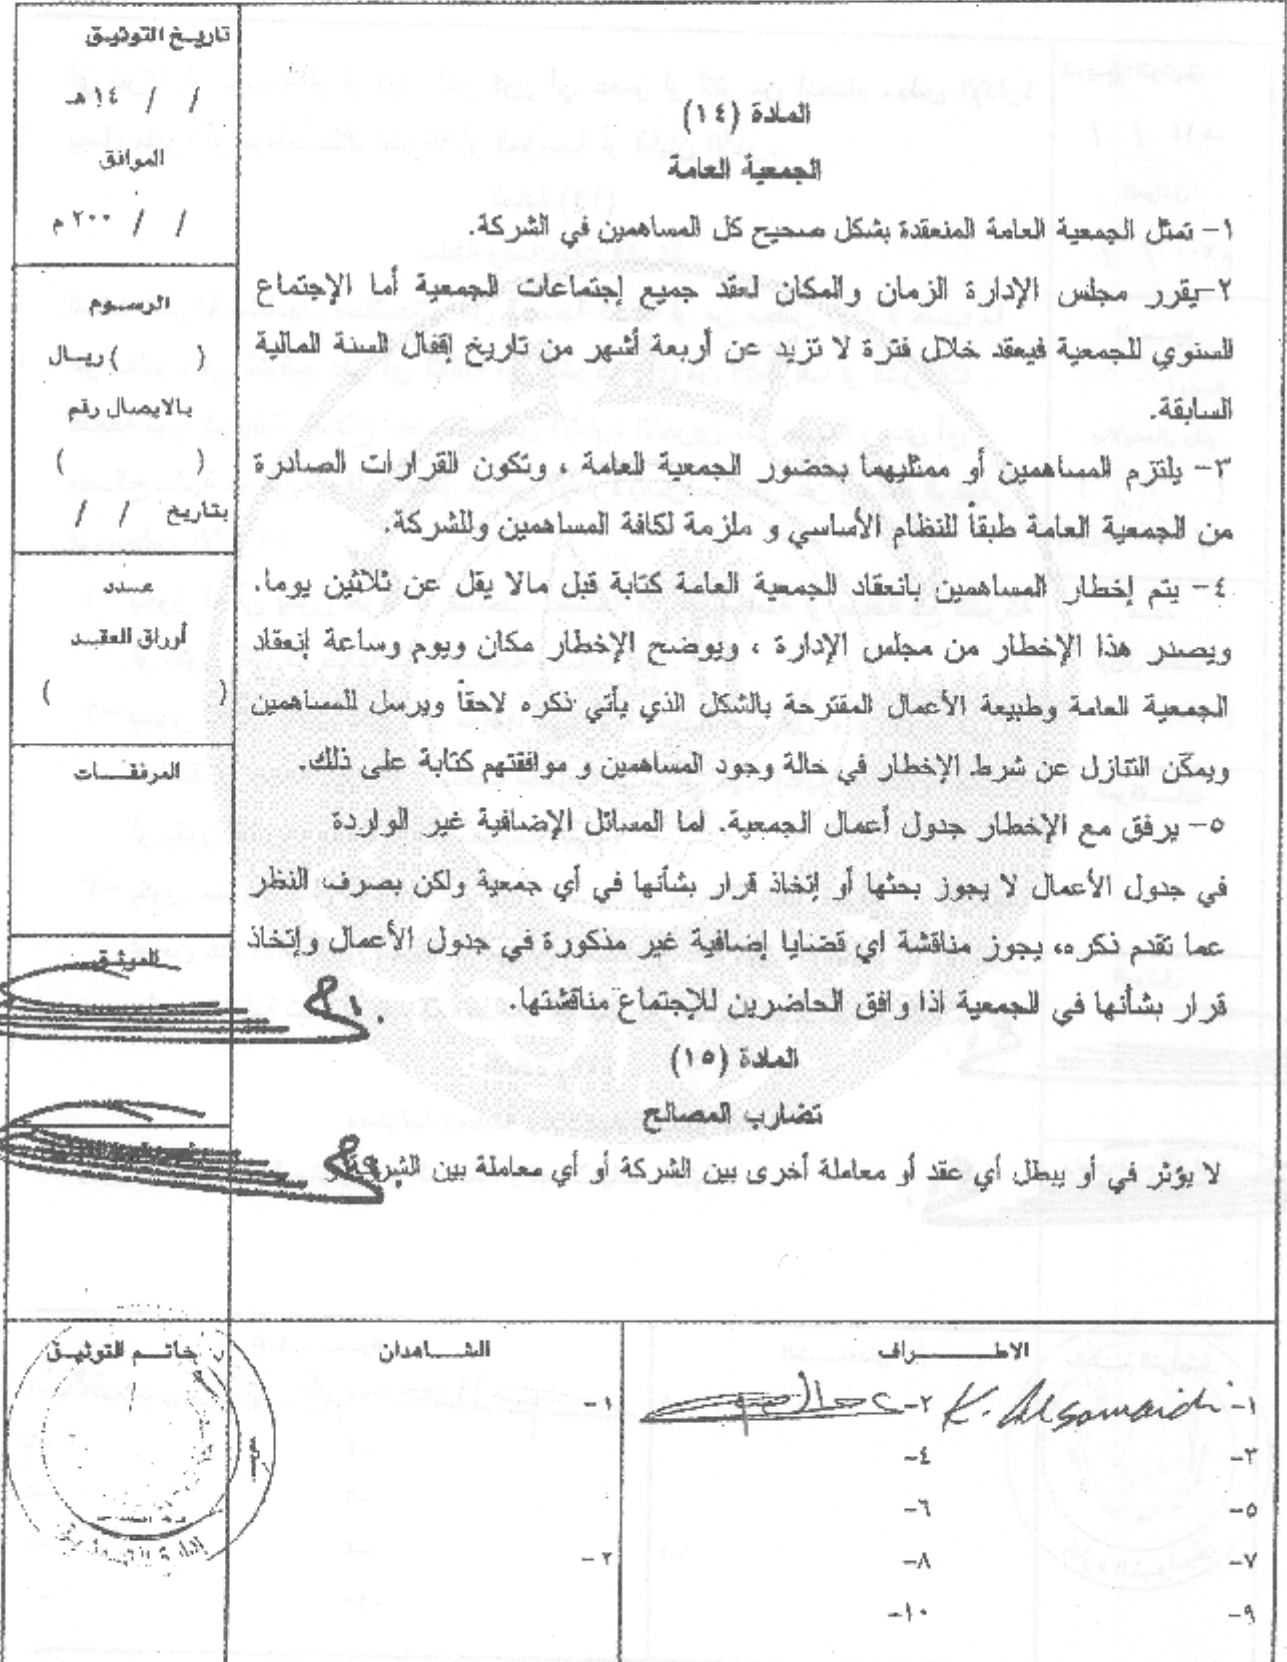 تاريخ التوثيق
/ / ١٤هـ
الموافق
/ / ٢٠٠ م
الرسوم
( ) ريال
بالايصال رقم
( )
بتاريخ / /
عدد
أوراق العقد
( )
المرفقات
الموثق
المادة (١٤)
الجمعية العامة
١- تمثل الجمعية العامة المنعقدة بشكل صحيح كل المساهمين في الشركة.
٢-يقرر مجلس الإدارة الزمان والمكان لعقد جميع إجتماعات الجمعية أما الإجتماع
السنوي للجمعية فيعقد خلال فترة لا تزيد عن أربعة أشهر من تاريخ إقفال السنة المالية
السابقة.
٣- يلتزم المساهمين أو ممثليهما بحضور الجمعية العامة ، وتكون القرارات الصادرة
من الجمعية العامة طبقاً للنظام الأساسي و ملزمة لكافة المساهمين وللشركة.
٤- يتم إخطار المساهمين بانعقاد الجمعية العامة كتابة قبل مالا يقل عن ثلاثين يوما.
ويصدر هذا الإخطار من مجلس الإدارة ، ويوضح الإخطار مكان ويوم وساعة إنعقاد
الجمعية العامة وطبيعة الأعمال المقترحة بالشكل الذي يأتي ذكره لاحقاً ويرسل للمساهمين
ويمكن التنازل عن شرط الإخطار في حالة وجود المساهمين و موافقتهم كتابة على ذلك.
٥- يرفق مع الإخطار جدول أعمال الجمعية. اما المسائل الإضافية غير الواردة
في جدول الأعمال لا يجوز بحثها أو إتخاذ قرار بشأنها في أي جمعية ولكن بصرف النظر
عما تقدم ذكره، يجوز مناقشة اي قضايا إضافية غير مذكورة في جدول الأعمال وإتخاذ
قرار بشأنها في الجمعية اذا وافق الحاضرين للإجتماع مناقشتها.
المادة (١٥)
تضارب المصالح
لا يؤثر في أو يبطل أي عقد أو معاملة أخرى بين الشركة أو أي معاملة بين الشركة و
الاطــراف
١- K. Alsomaidi
٢-
٣-
٤-
٥-
٦-
٧-
٨-
٩-
١٠-
الشــاهدان
١-
٢-
خاتم التوثيق